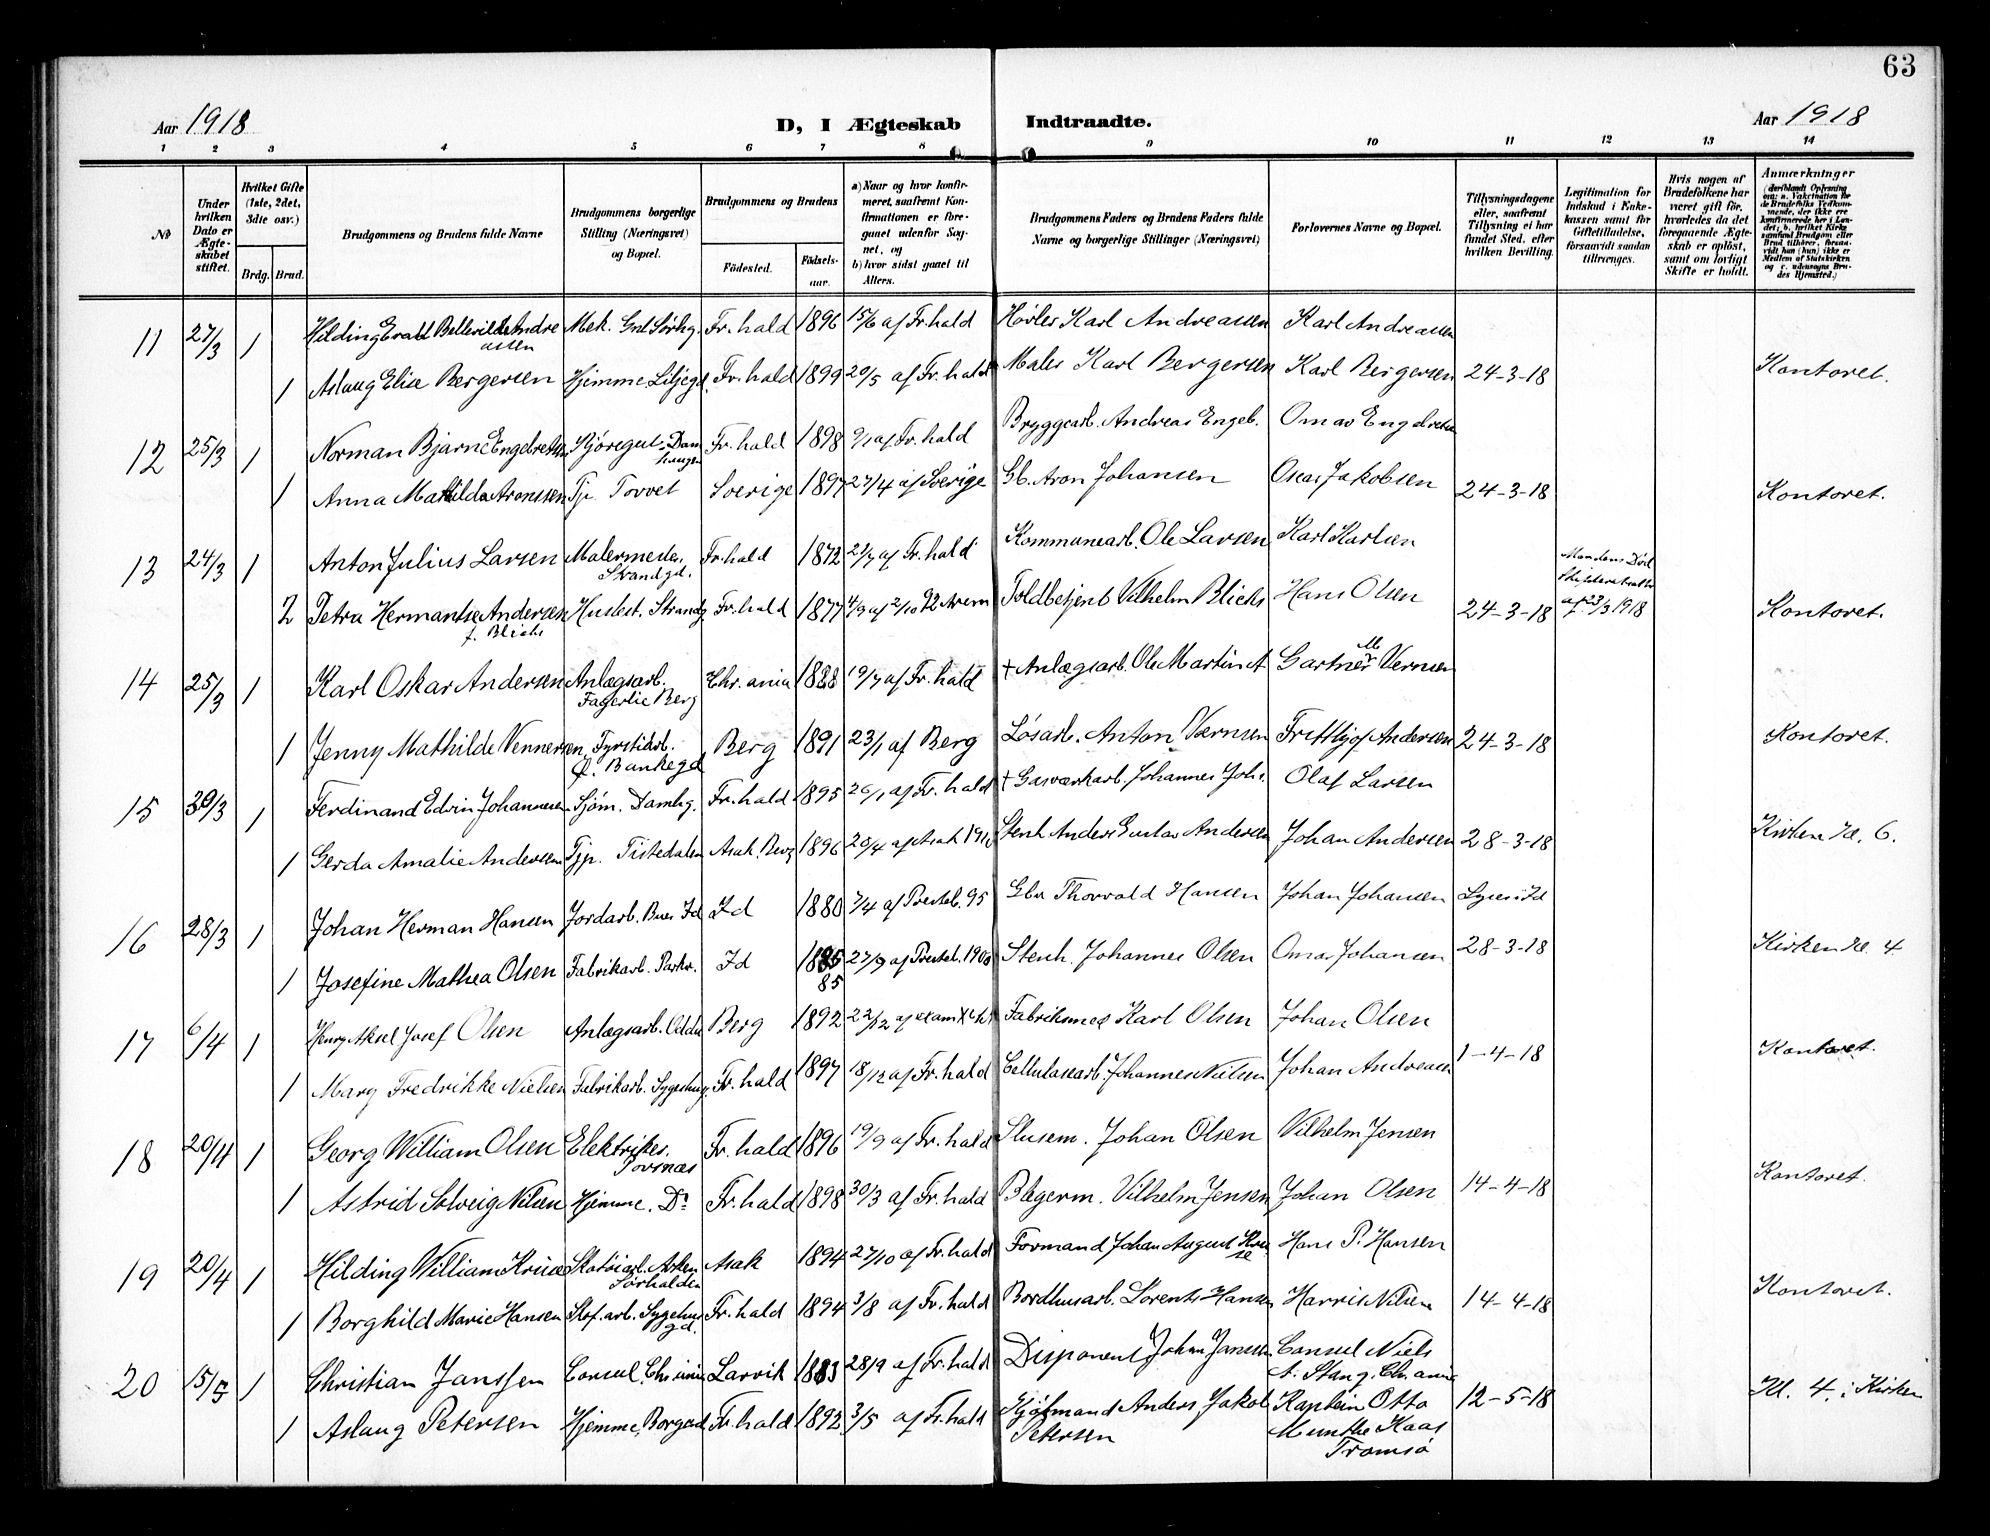 63
Aar 1918
D, I Ægteskab Indtraadte.
Aar 1918
1 2 3 4 5 6 7 8 9 10 11 12 13 14
No
Under hvilken Dato er Ægteskabet stiftet.
Hvilket Gifte (1ste, 2det, 3die osv.)
Brdg. Brud.
Brudgommens og Brudens fulde Navne
Brudgommens borgerlige Stilling (Næringsvei) og Bopæl.
Brudgommens og Brudens
Födested.
Födselsaar.
a) Naar og hvor konfirmeret, saafremt Konfirmationen er foregaaet udenfor Sognet, og
b) hvor sidst gaaet til Alters.
Brudgommens Faders og Brudens Faders fulde Navne og borgerlige Stillinger (Næringsvei)
Forlovernes Navne og Bopæl.
Tillysningsdagene eller, saafremt Tillysning ei har fundet Sted, efter hvilken Bevilling.
Legitimation for Indskud i Enkekassen samt for Giftetilladelse, forsaavidt saadan tiltrænges.
Hvis nogen af Brudefolkene har været gift før, hvorledes da det foregaaende Ægteskab er oplöst, samt om lovligt Skifte er holdt.
Anmærkninger
11 27/3 1 Hilding Andreassen Mek. Fr. hald 1896 15/6 af Fr. hald Karl Andreassen Karl Andreassen
1 Aslaug Elise Bergersen Hjemme. Liljegd. Fr. hald 1899 20/5 af Fr. hald Maler Karl Bergersen Karl Bergersen 24-3-18 Kontoret.
12 25/3 1 Norman Bjarne Engebretsen Kjøregut Damhaugen Fr. hald 1898 af Fr. hald Bryggearb. Andreas Engeb. Omar Engebretsen
1 Anna Mathilda Aronssen Tjp Torvet Sverige 1897 27/4 af Sverige Gb. Aron Johansen Oscar Jakobsen 24-3-18 Kontoret.
13 24/3 1 Anton Julius Larsen Malermester, Strandgd. Fr. hald 1872 2/7 af Fr. hald Kommunearb. Ole Larsen Karl Karlsen
2 Petra Hermantse Andersen f. Blichs Husbest. Strandg. Fr. hald 1877 4/9 af 2/10 92 Toldbetjent Vilhelm Blichs Hans Olsen 24-3-18 Mandens Død af 23/3 1918 Kontoret.
14 25/3 1 Karl Oskar Andersen Anlægsarb. Fagerlie Berg Chr. ania 1888 19/7 af Fr. hald + Anlægsarb. Ole Martin A Gartner M Vernsen
1 Jenny Mathilde Vennersen, Fyrstikarb. Ø. Bankegd Berg 1891 23/1 af Berg Løsarb. Anton Værnsen Fritthjof Andersen 24-3-18 Kontoret.
15 30/3 1 Ferdinand Edvin Johannesen Sjøm. Damhg. Fr. hald 1895 26/1 af Fr. hald + Gasværkarb. Johannes Johs. Olaf Larsen
1 Gerda Amalie Andersen Tjp. Tistedalen Asak. Berg 1896 25/4 af Asak Stenh Anders Gustav Andersen Johan Andersen 28-3-18 Kirken Kl. 6.
16 28/3 1 Johan Herman Hansen Jordarb. Bues Id Id 1880 7/4 af Presteb. 95 Gbr Thorvald Hansen Johan Johansen
1 Josefine Mathea Olsen Fabrikarb. Id 85 27/9 af Presteb. 1900 Stenh. Johannes Olsen Omar Johansen 28-3-18 Kirken Kl. 4.
17 6/4 1 Henry Aksel Josef Olsen Anlægsarb. Odda Berg 1892 22/12 af Fabriksmes Karl Olsen Johan Olsen
1 Mary Fredrikke Nielsen Fabrikarb. Sygehusg. Fr. hald 1897 18/12 af Fr. hald Cellulosearb. Johannes Nielsen Johan Andreasen 1-4-18 Kontoret.
18 20/4 1 Georg William Olsen Elektriker. Torsnæs Fr. hald 1896 19/9 af Fr. hald Slusem. Johan Olsen Vilhelm Jensen
1 Astrid Solveig Nilsen Hjemme. Do Fr. hald 1898 30/3 af Fr. hald Bøgerm. Vilhelm Jensen Johan Olsen 14-4-18 Kontoret.
19 20/4 1 Hilding William Kruse Skotøiarb. Asken Sørhalden Asak 1894 27/10 af Fr. hald Formand Johan August Kruse Hans P. Hansen
1 Borghild Marie Hansen Skof. arb. Sygehusgd. Fr. hald 1894 3/8 af Fr. hald Bordhusarb. Lorents Hansen Harris Nilsen 14-4-18 Kontoret.
20 15/5 1 Christian Janssen Consul, Chr.ania Larvik 1883 28/9 af Fr. hald Disponent Johan Janssen Consul Niels A. Stang, Chr.ania
1 Aslaug Petersen Hjemme, Borgerd Fr. hald 1892 3/5 af Fr. hald Kjøbmand Anders Jakob Petersen Kaptein Otto Munthe Kaas Tromsø 12-5-18 Kl. 4 i Kirken